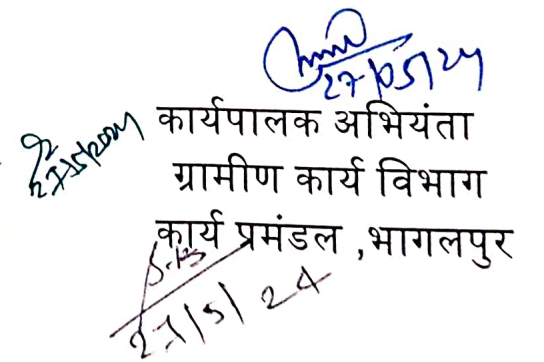 27/05/24
27/5/2024
कार्यपालक अभियंता
ग्रामीण कार्य विभाग
कार्य प्रमंडल ,भागलपुर
27/5/24